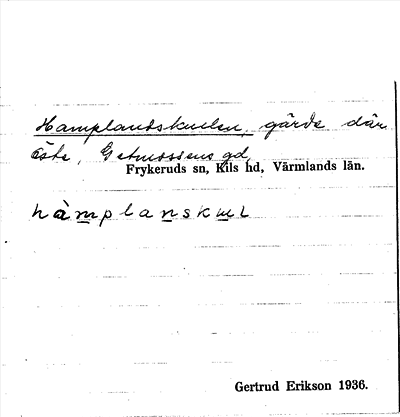 Hamplandskullen, gärde där
öste, Getmossens gd
Frykeruds sn, Kils hd, Värmlands län.
hàmplanskul
Gertrud Erikson 1936.